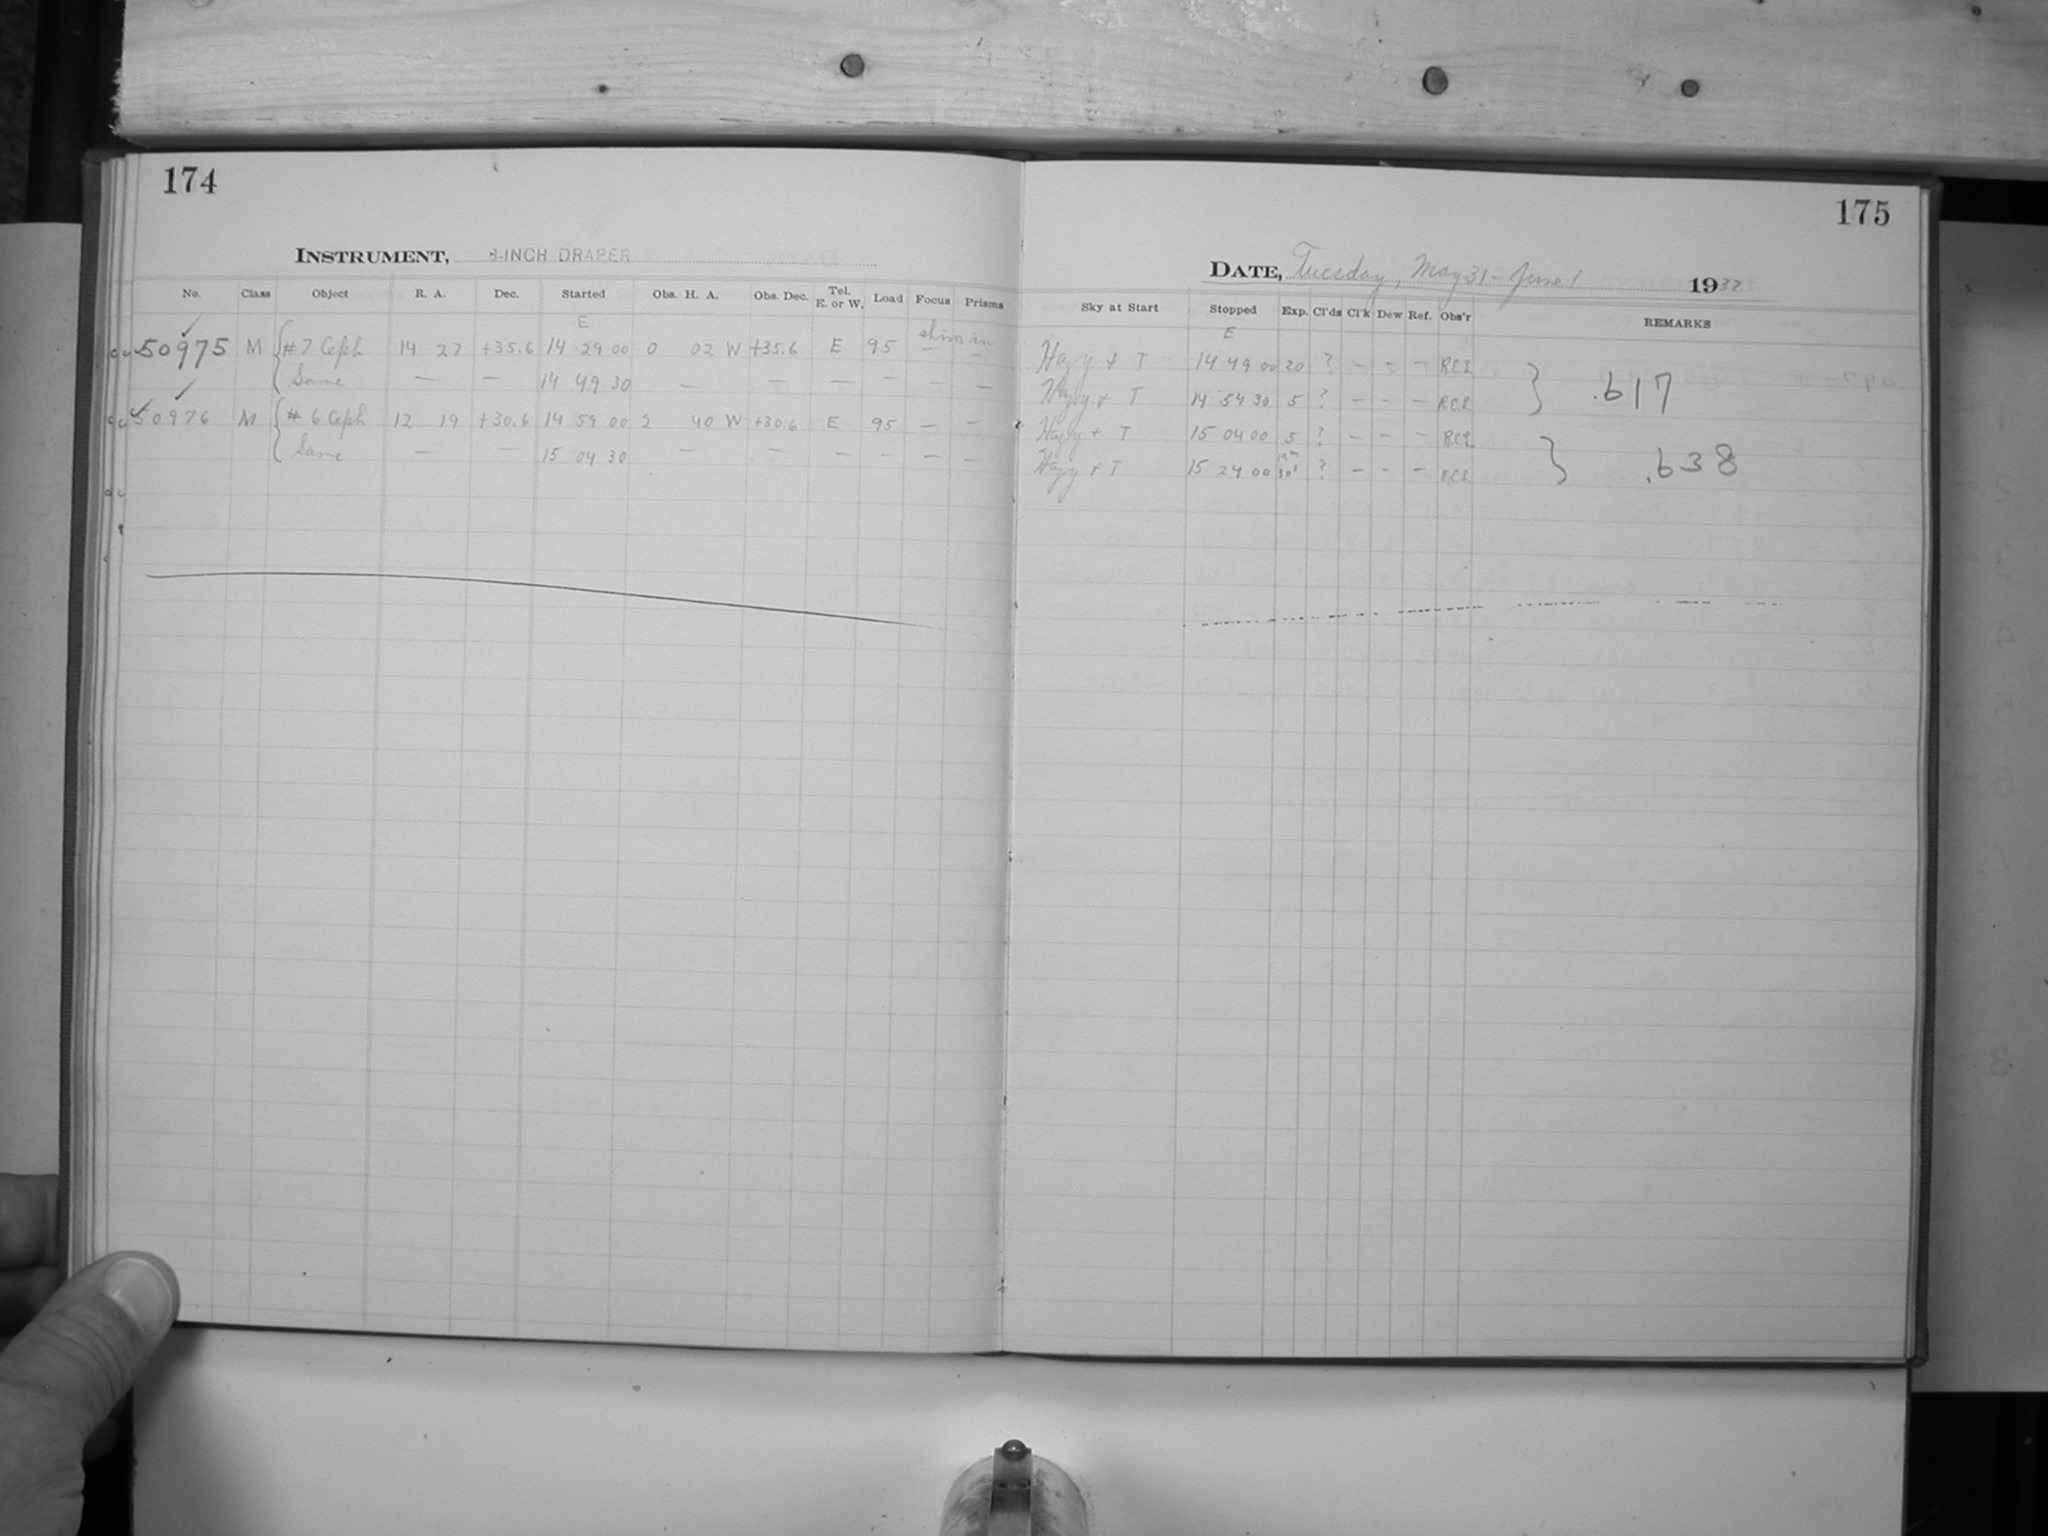 174
INSTRUMENT, 8-INCH DRAPER
No. Class Object R. A. Dec. Started Obs. H. A. Obs. Dec. Tel. E. or W. Load Focus Prisms
E
shim in
50975 M { #7 Ceph 14 27 +35.6 14 29 00 0 02 W +35.6 E 95 — —
Same — — 14 49 30 — — — — — —
50976 M { #6 Ceph 12 19 +30.6 14 59 00 2 40 W +30.6 E 95 — —
Same — — 15 04 30 — — — — — —
175
DATE, Tuesday, May 31 - June 1 1932
Sky at Start Stopped Exp. Cl'ds Cl'k Dew Ref. Obs'r REMARKS
E
Hazy + T 14 49 00 20 ? — — — RCL
} .617
Hazy + T 14 54 30 5 ? — — — RCL
Hazy + T 15 04 00 5 ? — — — RCL
} .638
Hazy + T 15 24 00 19m 30s ? — — — RCL